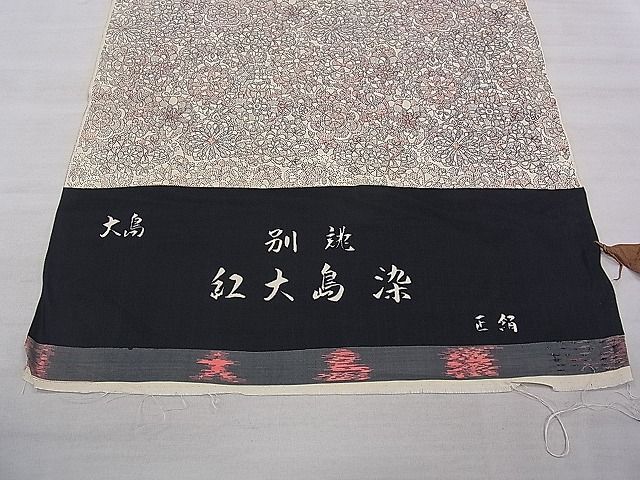 大島
別誂
紅大島染
正絹